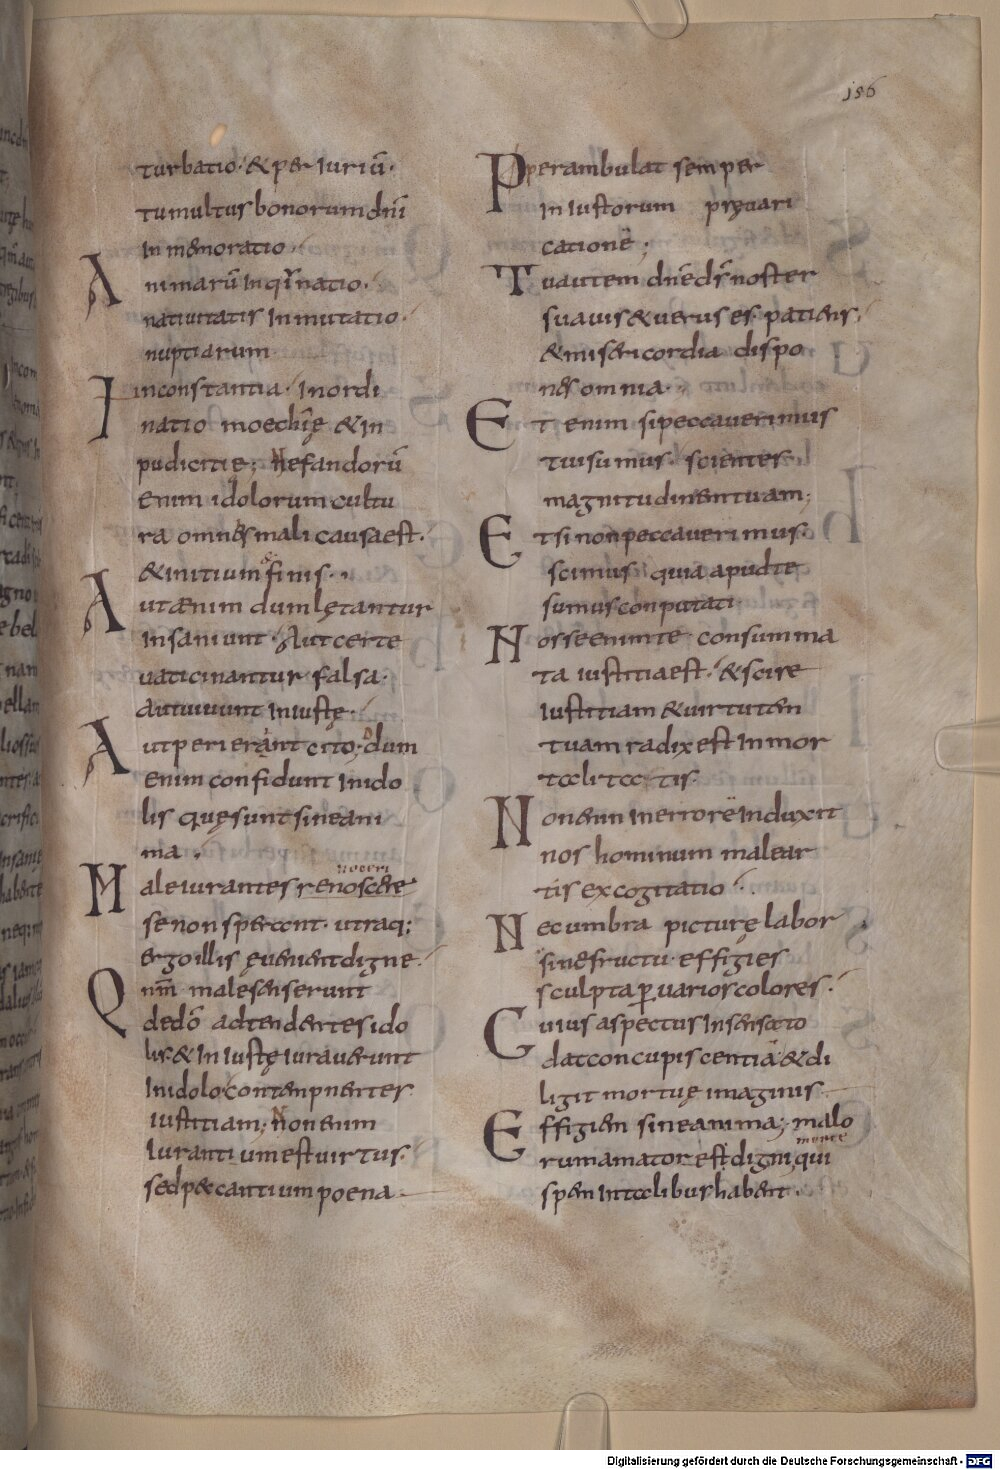 156
turbatio· & periuriū·
tumultus bonorum dn̄i
Inmemoratio·
Animarū Inqͥnatio·
natiuitatis Inmutatio·
nuptiarum
Inconstantia· Inordi
natio moechię & in
pudicitię; Nefandorū
enim idolorum cultu
ra omnes mali causa est·
& initium & finis·
Aut ænim dum lętantur
Insaniunt· Aut certe
uaticinantur falsa·
aut uiuunt Iniustę·
Aut perierant cito; dum
enim confidunt Inido
lis quę sunt sine ani
ma·
noceri
Male iurantes renoscere
se non sperant· utraq;
ergo illis ęuenient digne·
Qnm̄ male senserunt
de dō adtendentes ido
lis· & In Iustę iurauerunt
In idolo contempnentes
iustitiam; Non enim
Iurantium est uirtus·
sed peccantium poena
Pperambulat semper
In Iustorum pręuari
cationē;
Tu autem dn̄e ds̄ noster
suauis & uerus es· patiens
& misericordia dispo
nes omnia·
Etenim si peccauerimus
tui sumus· scientes
magnitudinem tuam;
Et si non peccauerimus·
scimus quia apud te
sumus conputati
Nosse enim te consumma
ta iustitia est· & scire
Iustitiam & uirtutem
tuam radix est Inmor
talitatis·
Non enim in errorē Induxit
nos hominum malear
tis excogitatio·
Nec umbra picturę labor
sine fructu· effigies
sculpta ꝑ uarios colores·
Cuius aspectus Insensato
dat concupiscentiā & di
ligit mortuę imaginis
Effigiem sine anima; malo
morte
rum amatores digni qui
spem In talibus habent·
Digitalisierung gefördert durch die Deutsche Forschungsgemeinschaft - DFG